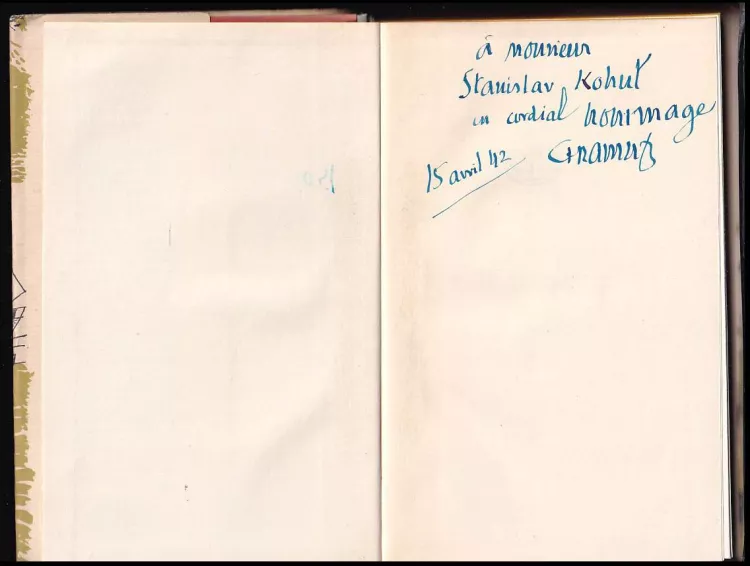 à monsieur
Stanislav Kohut
en cordial hommage
CFRamuz
15 avril 42